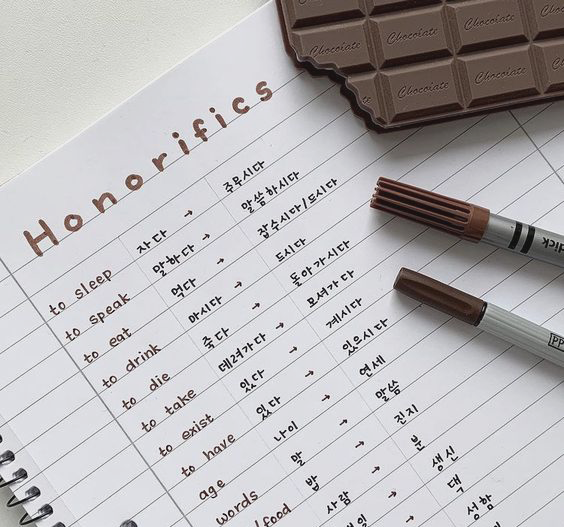 Chocolate Chocolate Chocolate
Chocolate Chocolate Chocolate
Chocolate Chocolate
Honorifics
to sleep 자다 → 주무시다
to speak 말하다 → 말씀하시다
to eat 먹다 → 잡수시다/드시다
to drink 마시다 → 드시다
to die 죽다 → 돌아가시다
to take 데려가다 → 모셔가다
to exist 있다 → 계시다
to have 있다 → 있으시다
age 나이 → 연세
words 말 → 말씀
/food 밥 → 진지
사람 → 분
→ 생신
댁
성함